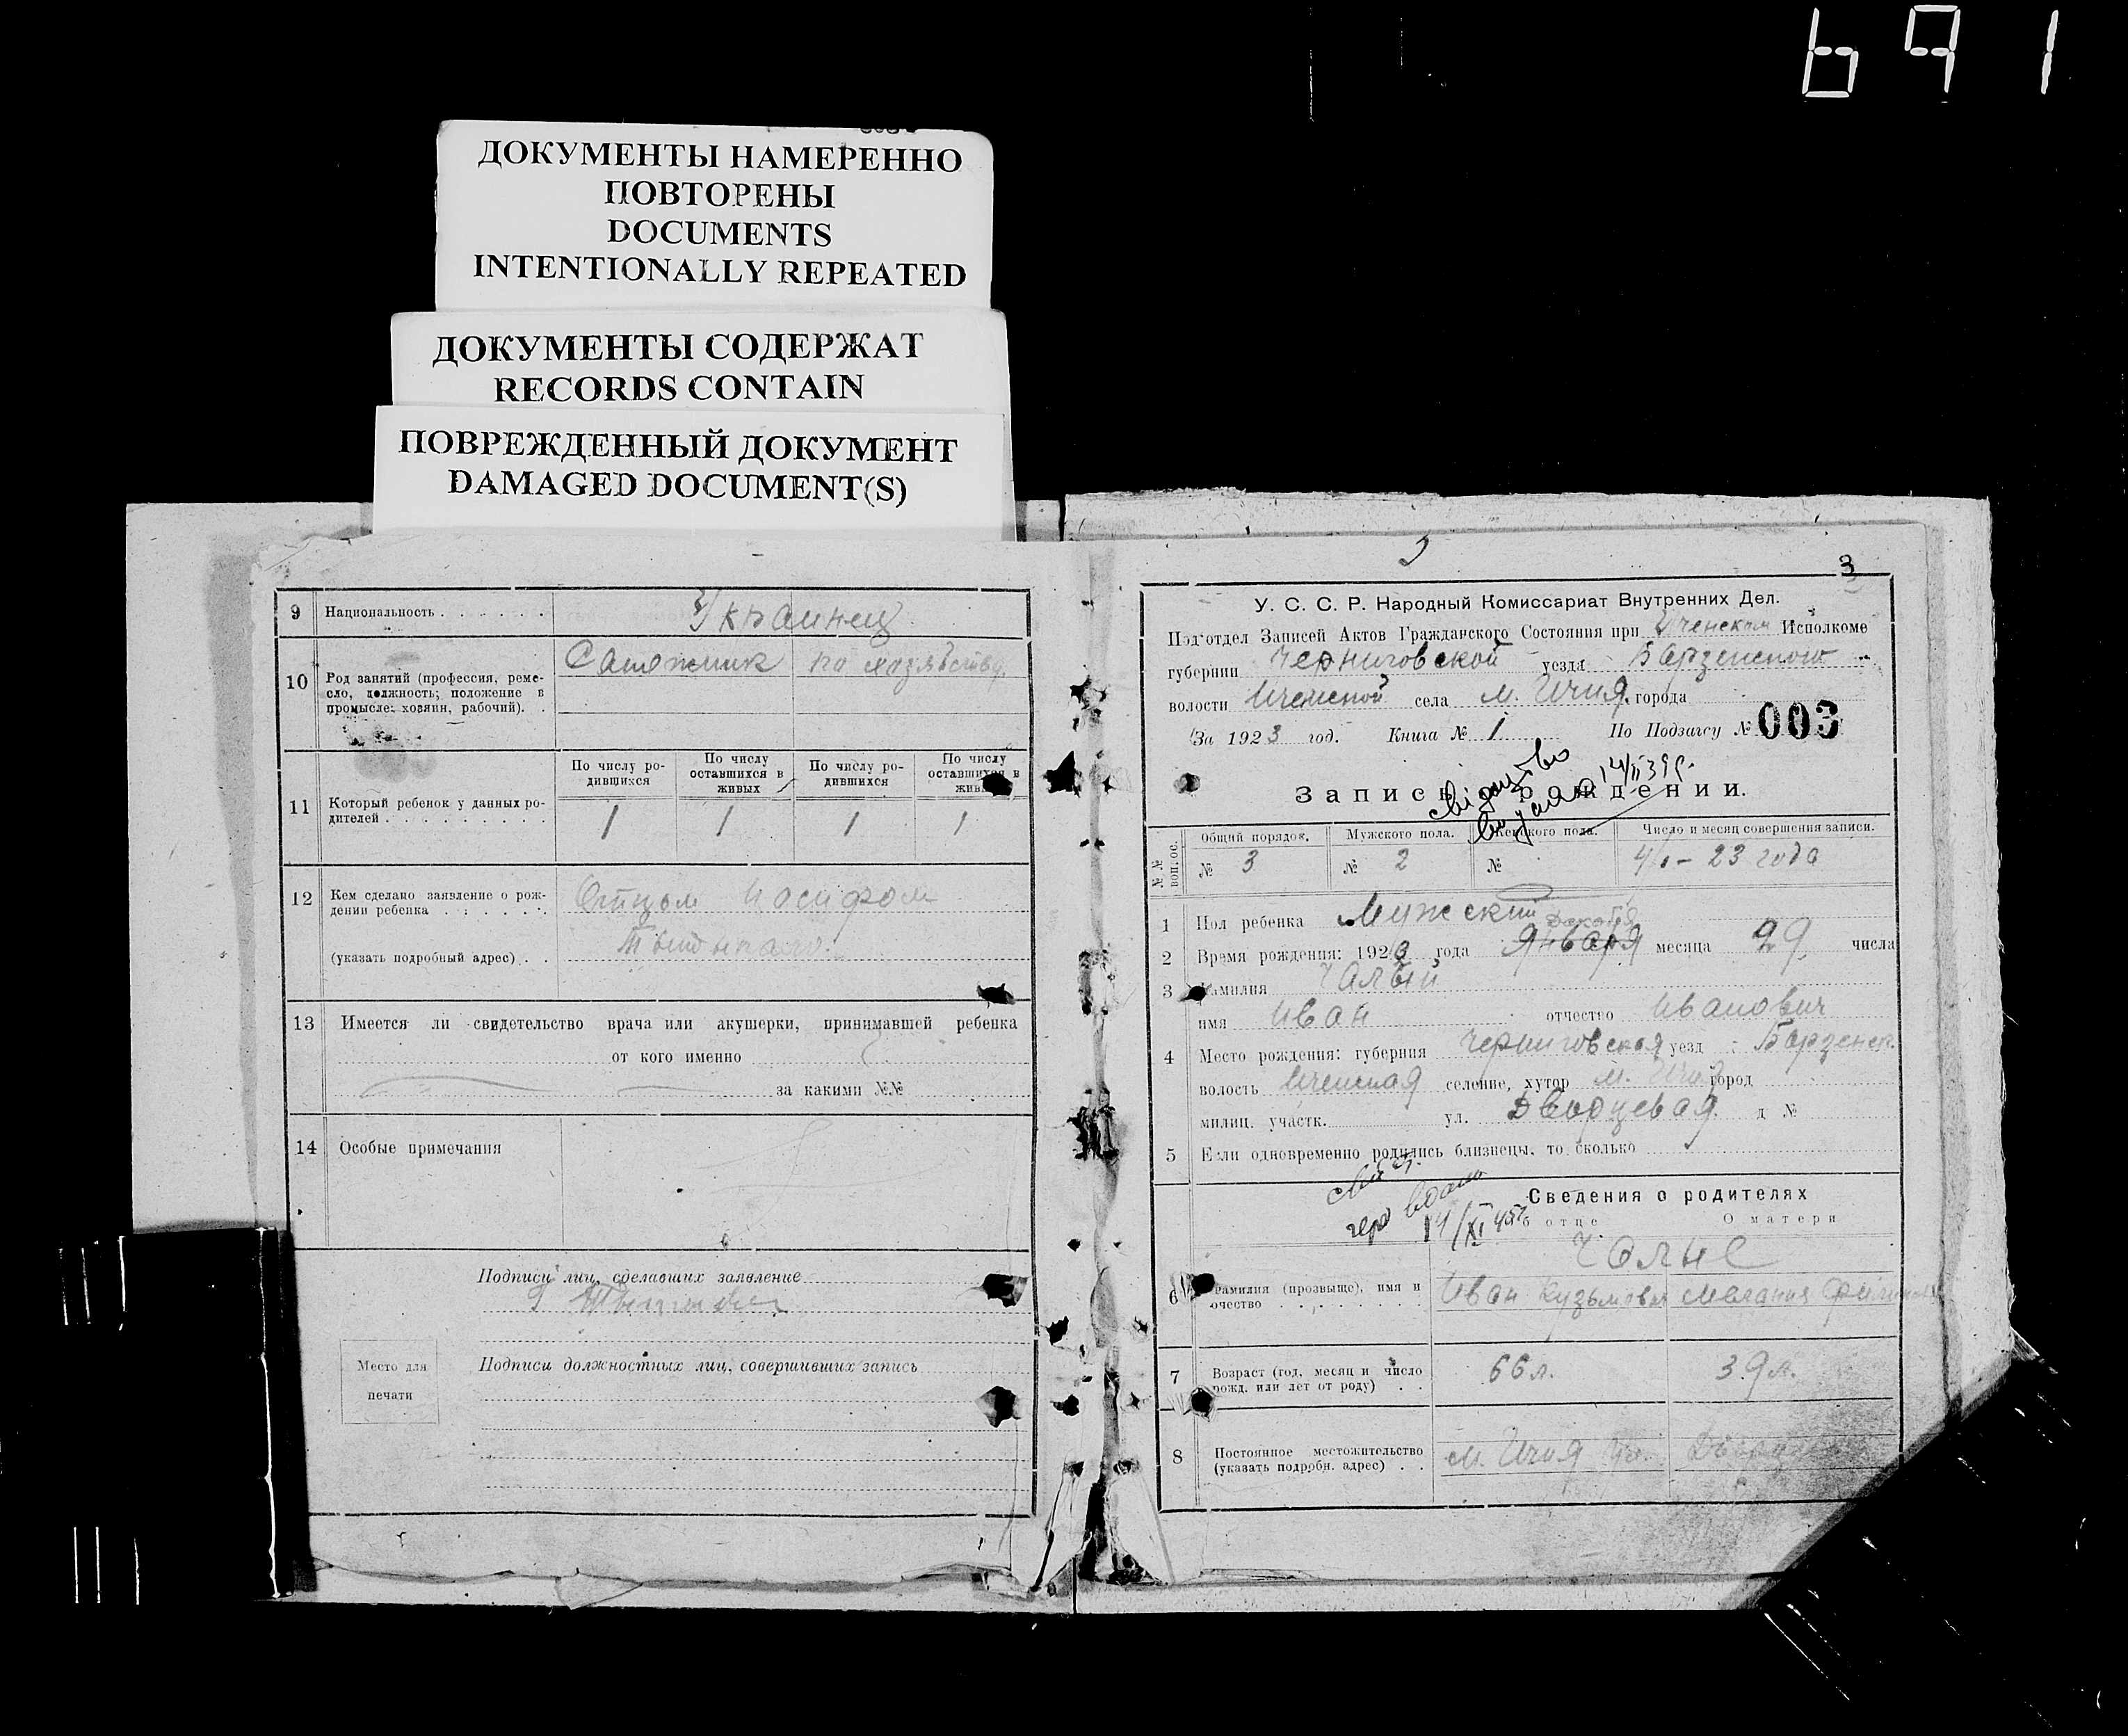 691
ДОКУМЕНТЫ НАМЕРЕННО
ПОВТОРЕНЫ
DOCUMENTS
INTENTIONALLY REPEATED
ДОКУМЕНТЫ СОДЕРЖАТ
RECORDS CONTAIN
ПОВРЕЖДЕННЫЙ ДОКУМЕНТ
DAMAGED DOCUMENT(S)
9 Национальность . . . . . . Украинец
10 Род занятий (профессия, реме-
сло, должность; положение в
промысле: хозяин, рабочий). .
Сапожник по хозяйству
11 Который ребенок у данных ро-
дителей . . . . . . . . . .
По числу ро-
дившихся
По числу
оставшихся в
живых
По числу ро-
дившихся
По числу
оставшихся в
живых
1 1 1 1
12 Кем сделано заявление о рож-
дении ребенка . . . . . .
Отцом Иосифом
(указать подробный адрес) . .
13 Имеется ли свидетельство врача или акушерки, принимавшей ребенка
от кого именно
за какими №№
14 Особые примечания
Подписи лиц, сделавших заявление
Место для
печати
Подписи должностных лиц, совершивших запись
3
У. С. С. Р. Народный Комиссариат Внутренних Дел.
Под'отдел Записей Актов Гражданского Состояния при Иченском Исполкоме
губернии Черниговской уезда Борзенского
волости Иченской села м. Ичня города
За 1923 год. Книга № 1 По Подзагсу № 003
свідоцтво
видано 14/II 39 р.
Запись о рождении.
№№ воп.ос.
Общий порядок. Мужского пола. Женского пола. Число и месяц совершения записи.
№ 3 № 2 № 4/I – 23 года
1 Пол ребенка Мужский
Декабря
2 Время рождения: 1923 года Января месяца 29 числа
3 Фамилия Чалый
имя Иван отчество Иванович
4 Место рождения: губерния Черниговская уезд Борзенск.
волость Иченская селение, хутор м. Ичня город
милиц. участк. ул. Дворцевая д №
5 Если одновременно родились близнецы, то сколько
14/XI 45
Сведения о родителях
О отце О матери
Чалые
6 Фамилия (прозвище), имя и
очество . . . . . . . . .
Иван Кузьмович Мелания
7 Возраст (год, месяц и число
рожд. или лет от роду) . .
66 л. 39 л.
8 Постоянное местожительство
(указать подробн. адрес) . .
м. Ичня ул.